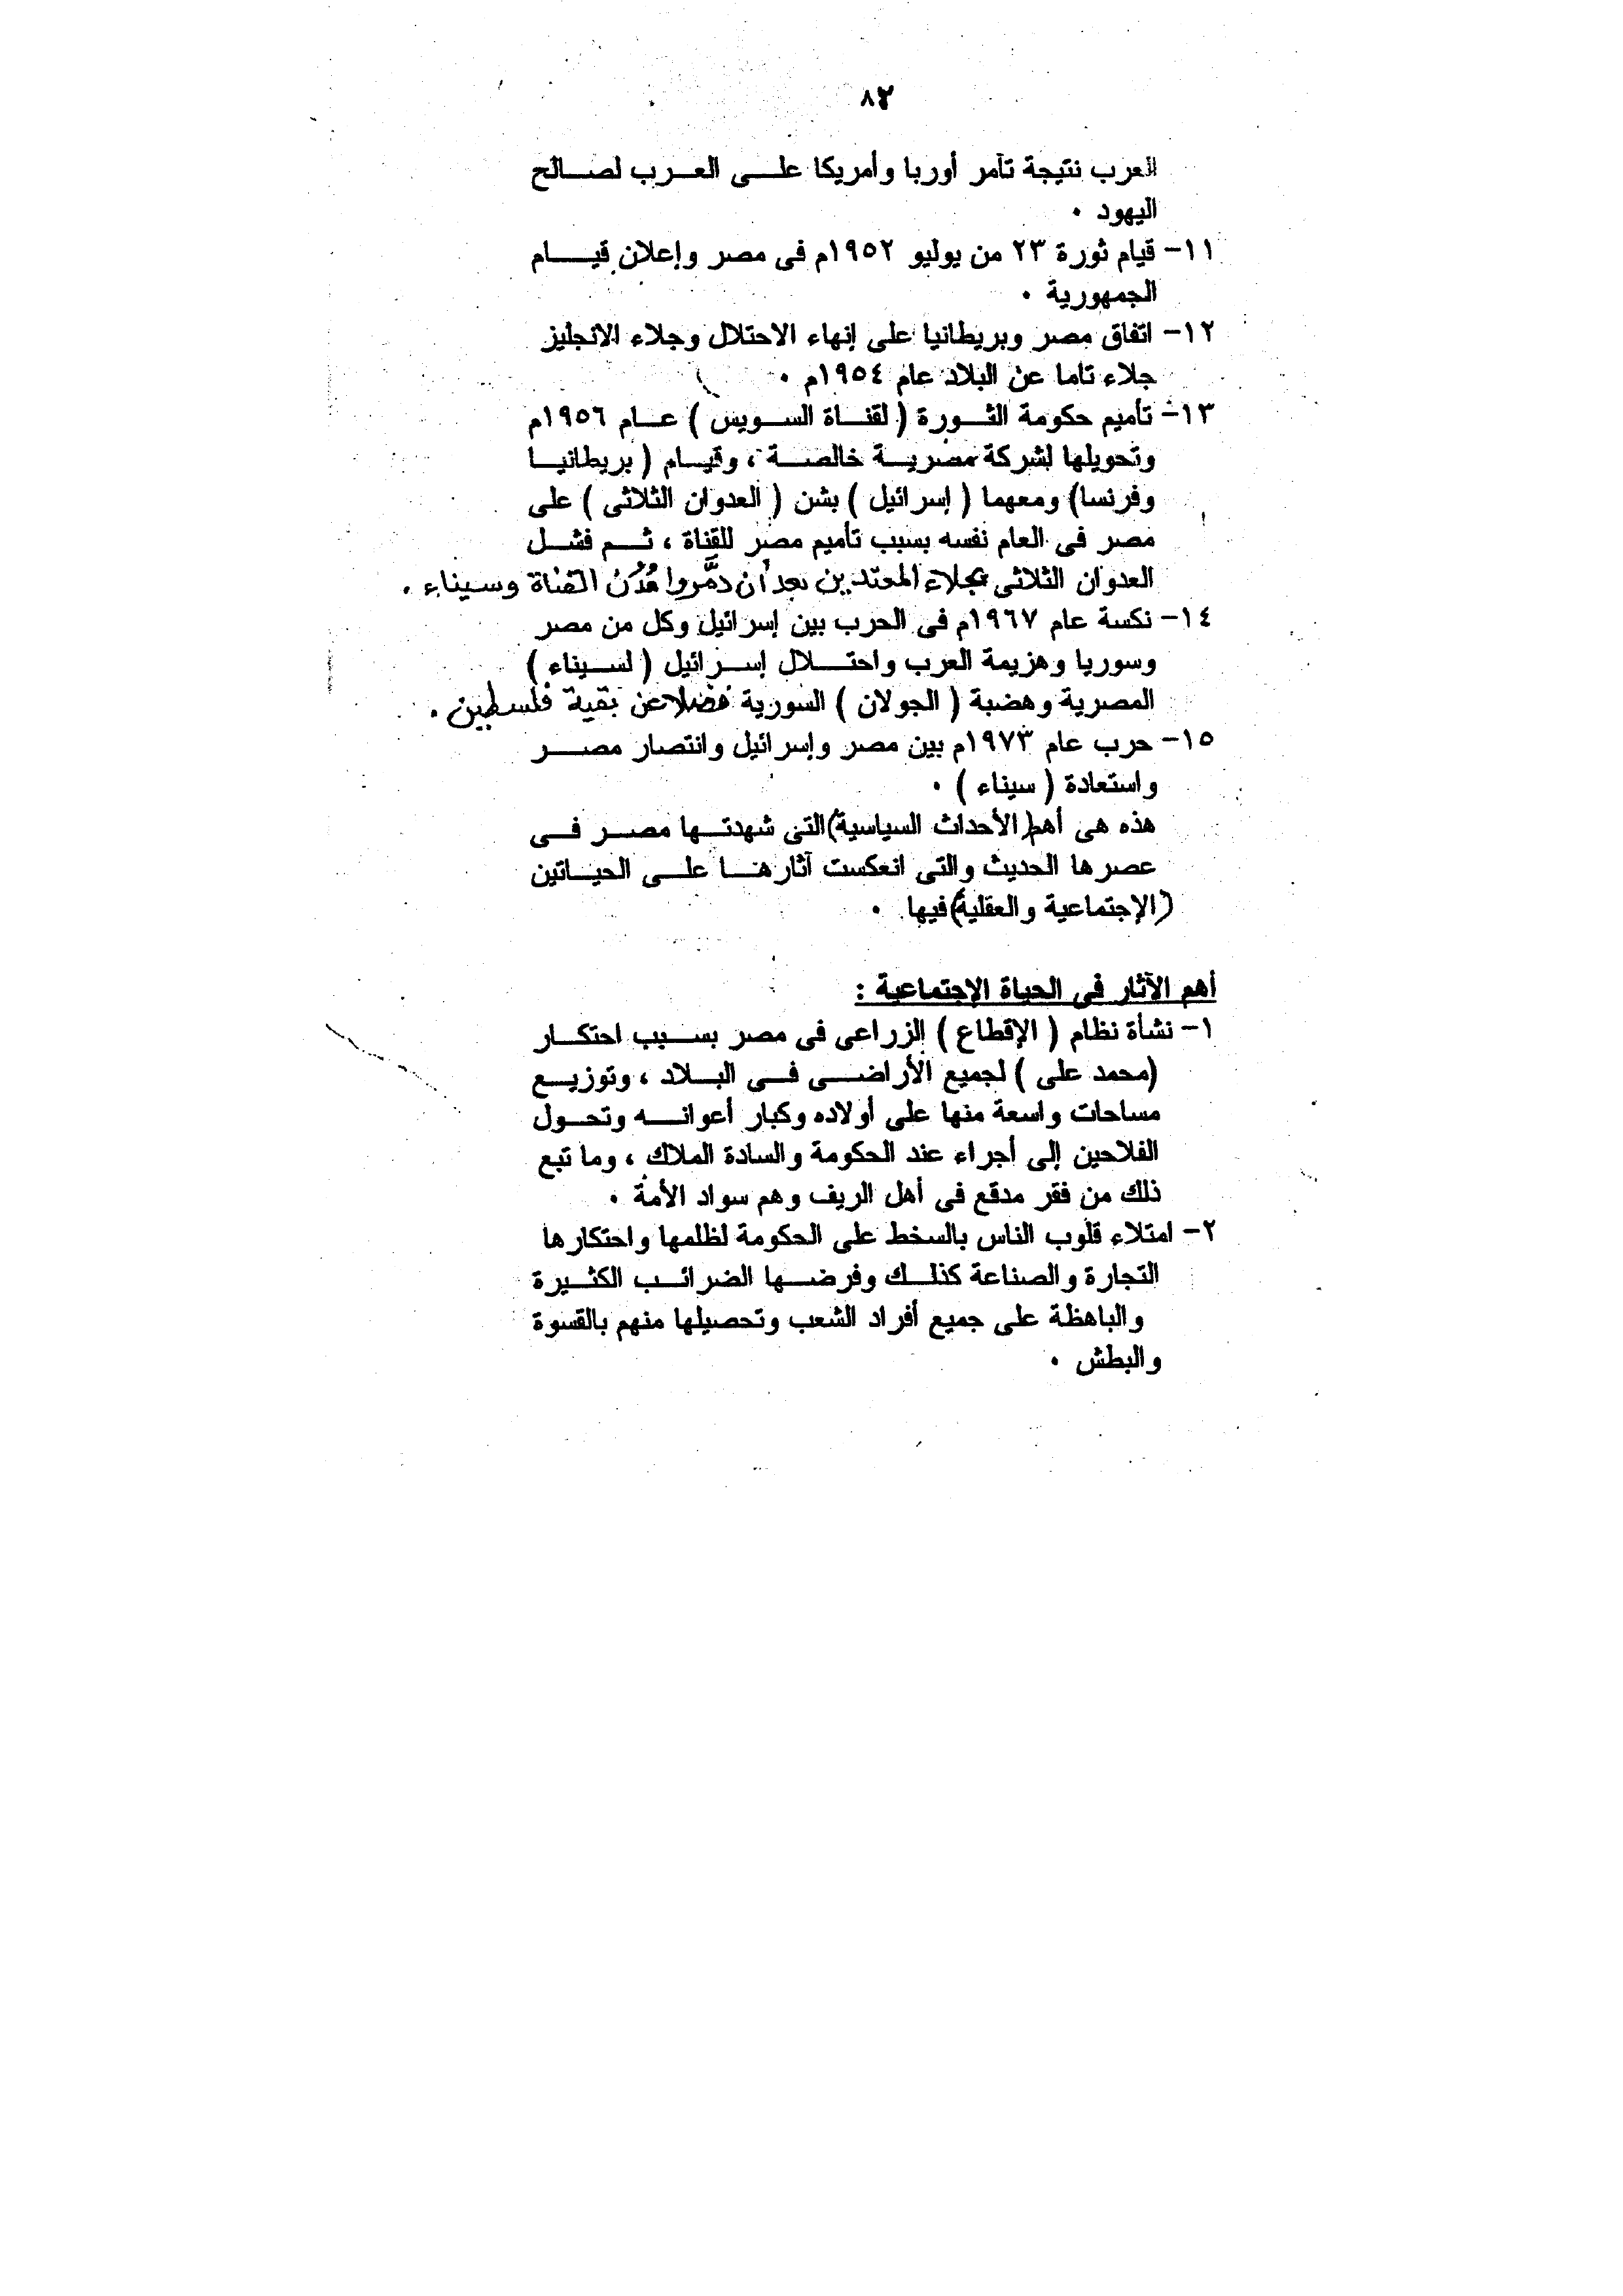 ٨٢
العرب نتيجة تآمر أوربا وأمريكا على العرب لصالح
اليهود ٠
١١- قيام ثورة ٢٣ من يوليو ١٩٥٢م فى مصر وإعلان قيام
الجمهورية ٠
١٢- اتفاق مصر وبريطانيا على إنهاء الاحتلال وجلاء الانجليز
جلاء تاما عن البلاد عام ١٩٥٤م ٠
١٣- تأميم حكومة الثورة ( لقناة السويس ) عام ١٩٥٦م
وتحويلها لشركة مصرية خالصة ، وقيام ( بريطانيا
وفرنسا) ومعهما ( إسرائيل ) بشن ( العدوان الثلاثى ) على
مصر فى العام نفسه بسبب تأميم مصر للقناة ، ثم فشل
العدوان الثلاثى بجلاء المعتدين بعد أن دمَّروا مُدُن القناة وسيناء .
١٤- نكسة عام ١٩٦٧م فى الحرب بين إسرائيل وكل من مصر
وسوريا وهزيمة العرب واحتلال إسرائيل ( لسيناء )
المصرية وهضبة ( الجولان ) السورية فضلا عن بقية فلسطين .
١٥- حرب عام ١٩٧٣م بين مصر وإسرائيل وانتصار مصر
واستعادة ( سيناء ) ٠
هذه هى أهم (الأحداث السياسية) التى شهدتها مصر فى
عصرها الحديث والتى انعكست آثارها على الحياتين
(الإجتماعية والعقلية) فيها ٠
أهم الآثار فى الحياة الإجتماعية :
١- نشأة نظام ( الإقطاع ) الزراعى فى مصر بسبب احتكار
(محمد على ) لجميع الأراضى فى البلاد ، وتوزيع
مساحات واسعة منها على أولاده وكبار أعوانه وتحول
الفلاحين إلى أجراء عند الحكومة والسادة الملاك ، وما تبع
ذلك من فقر مدقع فى أهل الريف وهم سواد الأمة ٠
٢- امتلاء قلوب الناس بالسخط على الحكومة لظلمها واحتكارها
التجارة والصناعة كذلك وفرضها الضرائب الكثيرة
والباهظة على جميع أفراد الشعب وتحصيلها منهم بالقسوة
والبطش ٠